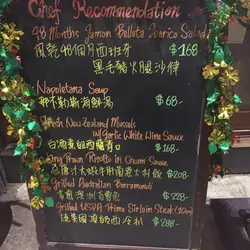 Chef Recommendation
48 Months Jamon Bellota Iberico Salad
風乾48個月西班牙 $168
黑毛豬火腿沙律
Napoletana Soup
那不勒斯海鮮湯 $68
Fresh New Zealand Mussels
w/ Garlic White Wine Sauce
白酒煮紐西蘭青口 $168
King Prawn Risotto in Cream Sauce
忌廉汁大蝦牛肝菌意大利飯 $208
Grilled Australian Barramundi
$228
Grilled USDA Prime Sirloin Steak
$288